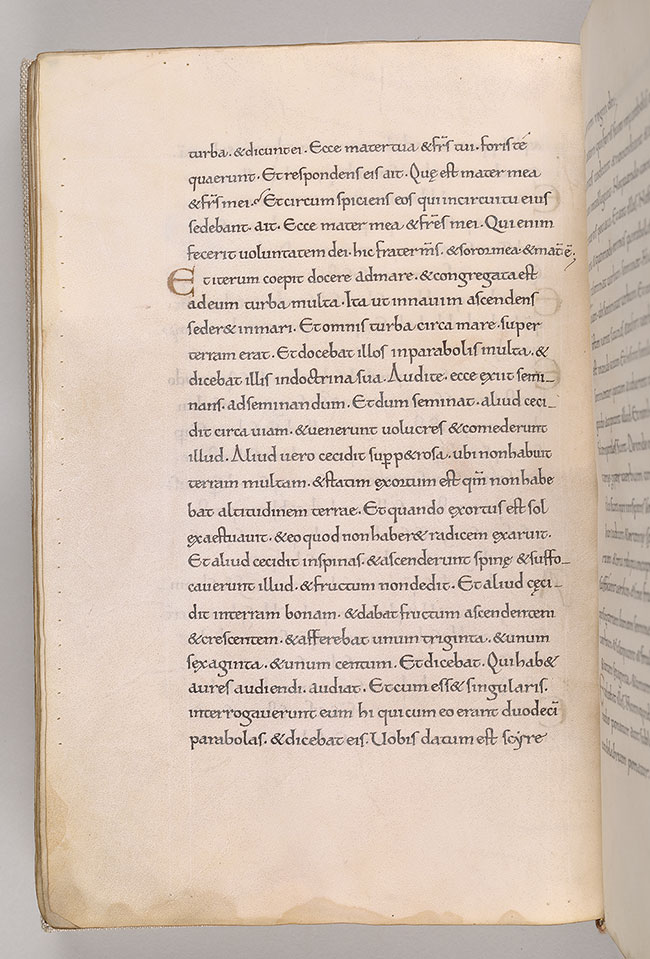 turba. &dicunt ei. Ecce mater tua &frs̄ tui. foris tē
quaerunt. Et respondens eis ait. Quę est mater mea
&frs̄ mei. Et circumspiciens eos qui in circuitu eius
sedebant. ait. Ecce mater mea &frēs mei. Qui enim
fecerit uoluntatem dei. hic frater m̄s. &soror mea &mat̄ ē;
Et iterum coepit docere ad mare. &congregata est
ad eum turba multa. Ita ut in nauim ascendens
seder& in mari. Et omnis turba circa mare. super
terram erat. Et docebat illos in parabolis multa. &
dicebat illis in doctrina sua. Audite. ecce exiit semi-
nans. ad seminandum. Et dum seminat. aliud ceci-
dit circa uiam. &uenerunt uolucres &comederunt
illud. Aliud uero cecidit sup̱ p&rosa. ubi non habuit
terram multam. &statim ęxortum est qm̄ non habe
bat altitudinem terrae. Et quando exortus est sol
ęxaestuauit. &eo quod non haber& radicem exaruit.
Et aliud cecidit in spinas. &ascenderunt spinę &suffo-
cauerunt illud. &fructum non dedit. Et aliud cęci-
dit in terram bonam. &dabat fructum ascendentem
&crescentem. &afferebat unum triginta. &unum
sęxaginta. &unum centum. Et dicebat. Qui hab&
aures audiendi. audiat. Et cum ess& singularis.
interrogauerunt eum hi qui cum eo erant duodecī
parabolas. &dicebat eis. Uobis datum est scyre